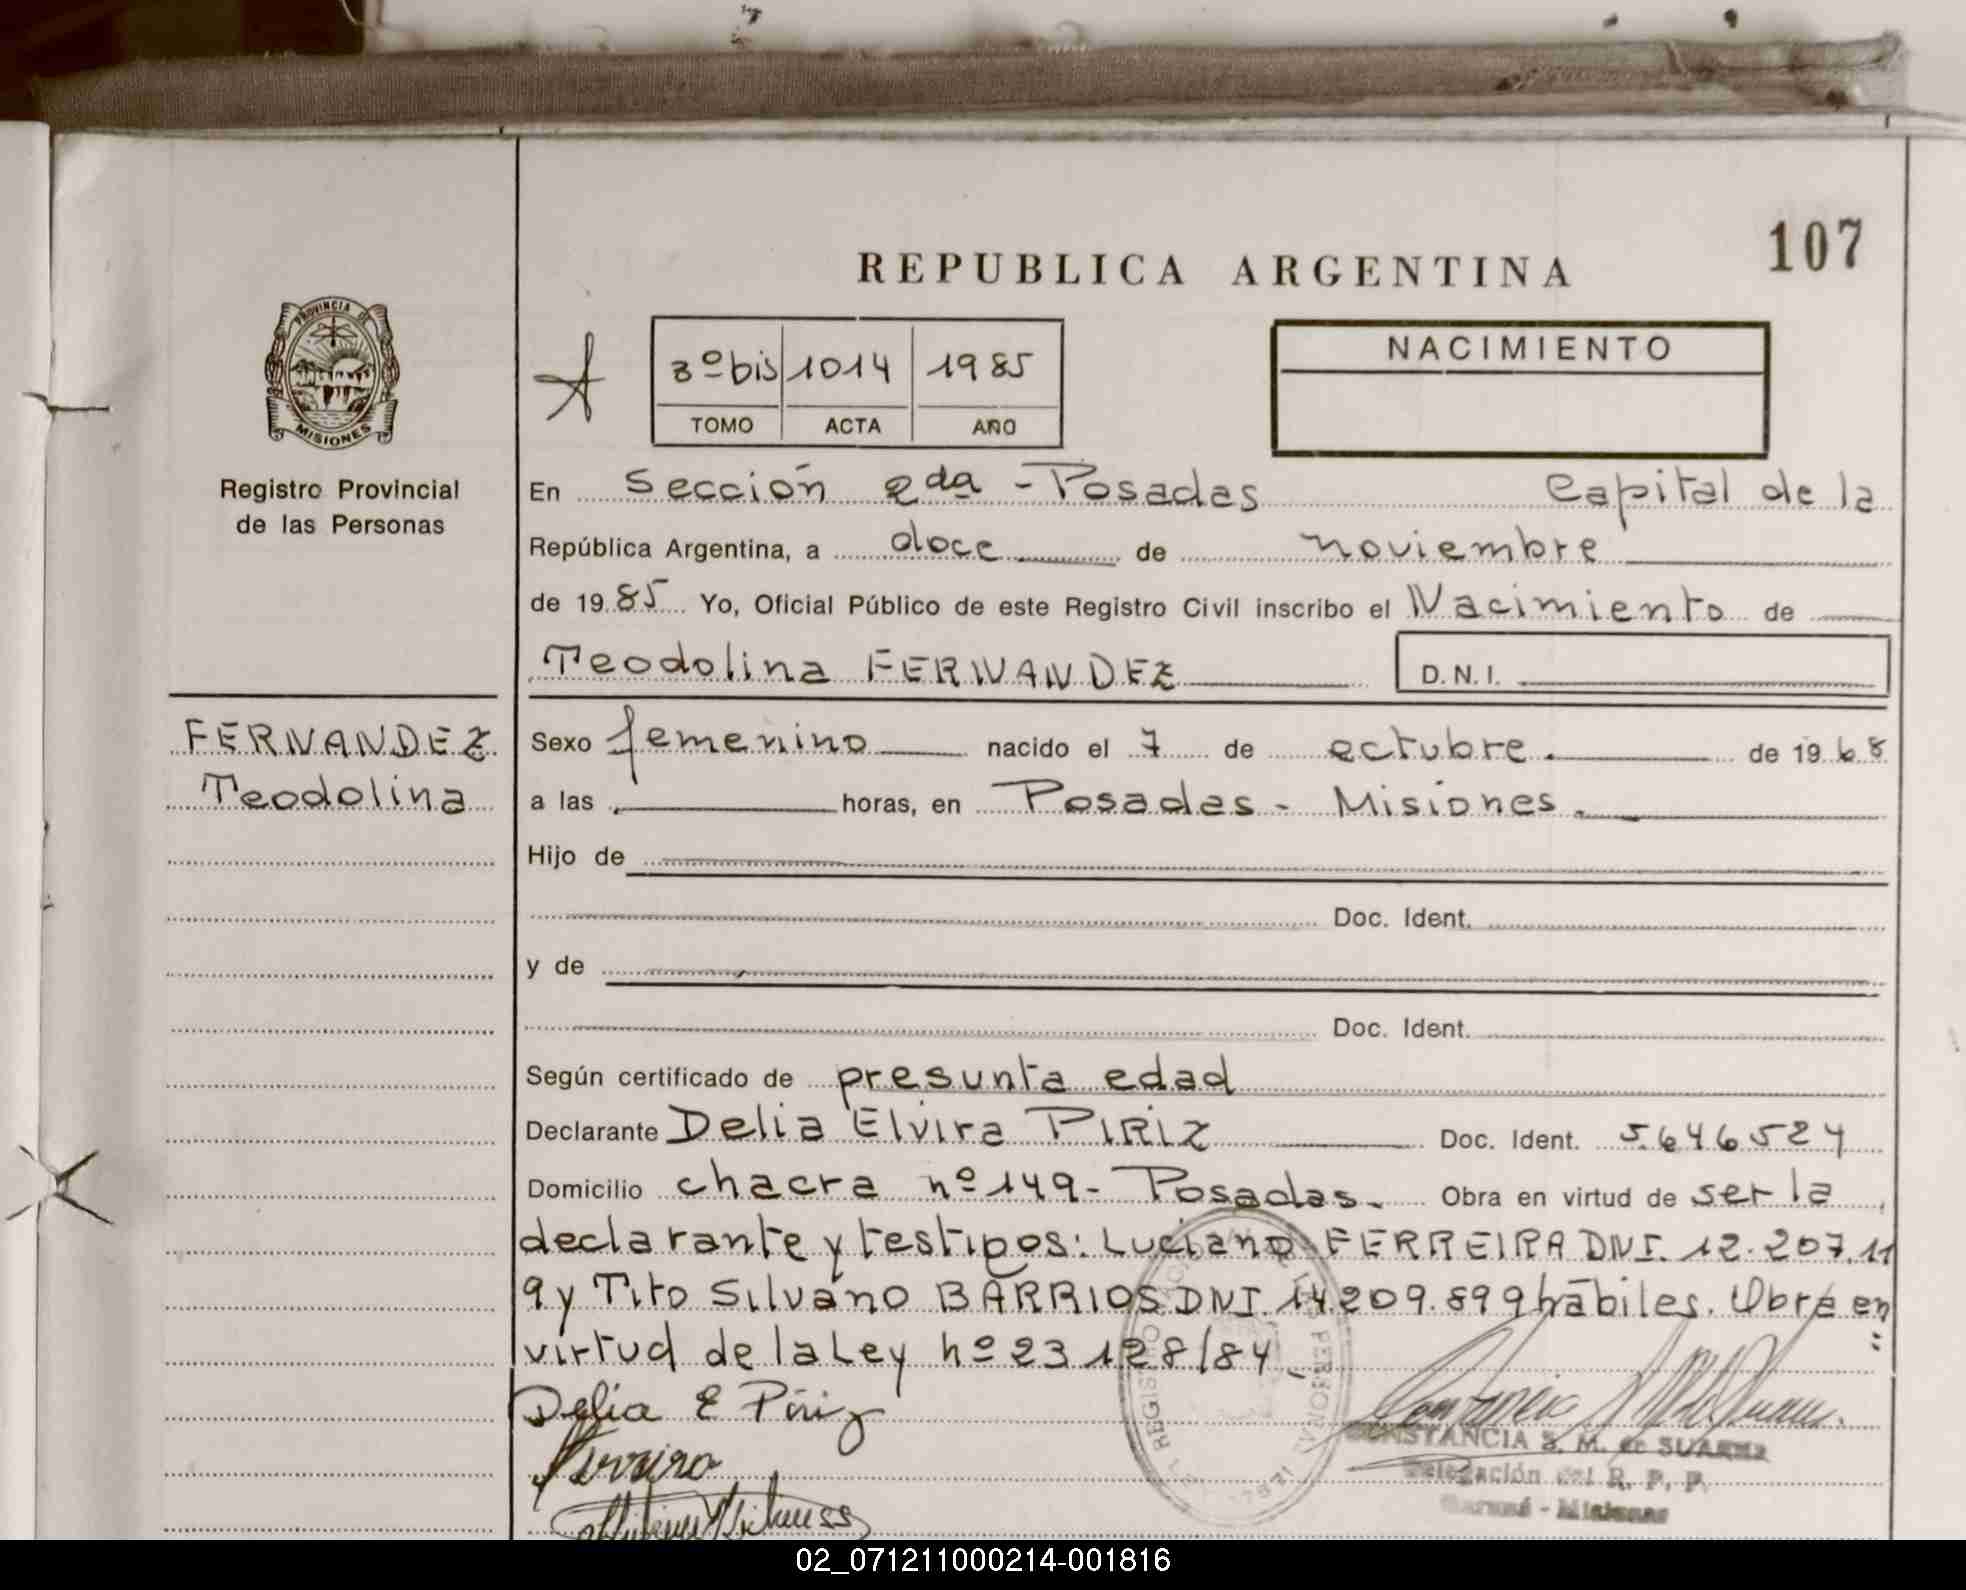 107
REPUBLICA ARGENTINA
PROVINCIA DE
MISIONES
Registro Provincial
de las Personas
3º bis 1014 1985
TOMO ACTA AÑO
NACIMIENTO
En Sección 2da - Posadas Capital de la
República Argentina, a doce de noviembre
de 1985 Yo, Oficial Público de este Registro Civil inscribo el Nacimiento de
Teodolina FERNANDEZ D.N.I.
FERNANDEZ
Teodolina
Sexo femenino nacido el 7 de octubre. de 1968
a las horas, en Posadas - Misiones.
Hijo de
Doc. Ident.
y de
Doc. Ident.
Según certificado de presunta edad
Declarante Delia Elvira PIRIZ Doc. Ident. 5.646524
Domicilio chacra nº 149 - Posadas. Obra en virtud de ser la
declarante y testigos: Luciano FERREIRA DNI. 12.207.11
9 y Tito Silvano BARRIOS DNI. 14.209.899 hábiles. Obra en
virtud de la Ley nº 23 128/84
Delia E Píriz
CONSTANCIA S. M. de SUAREZ
Delegación del R. P. P.
Misiones
02_071211000214-001816